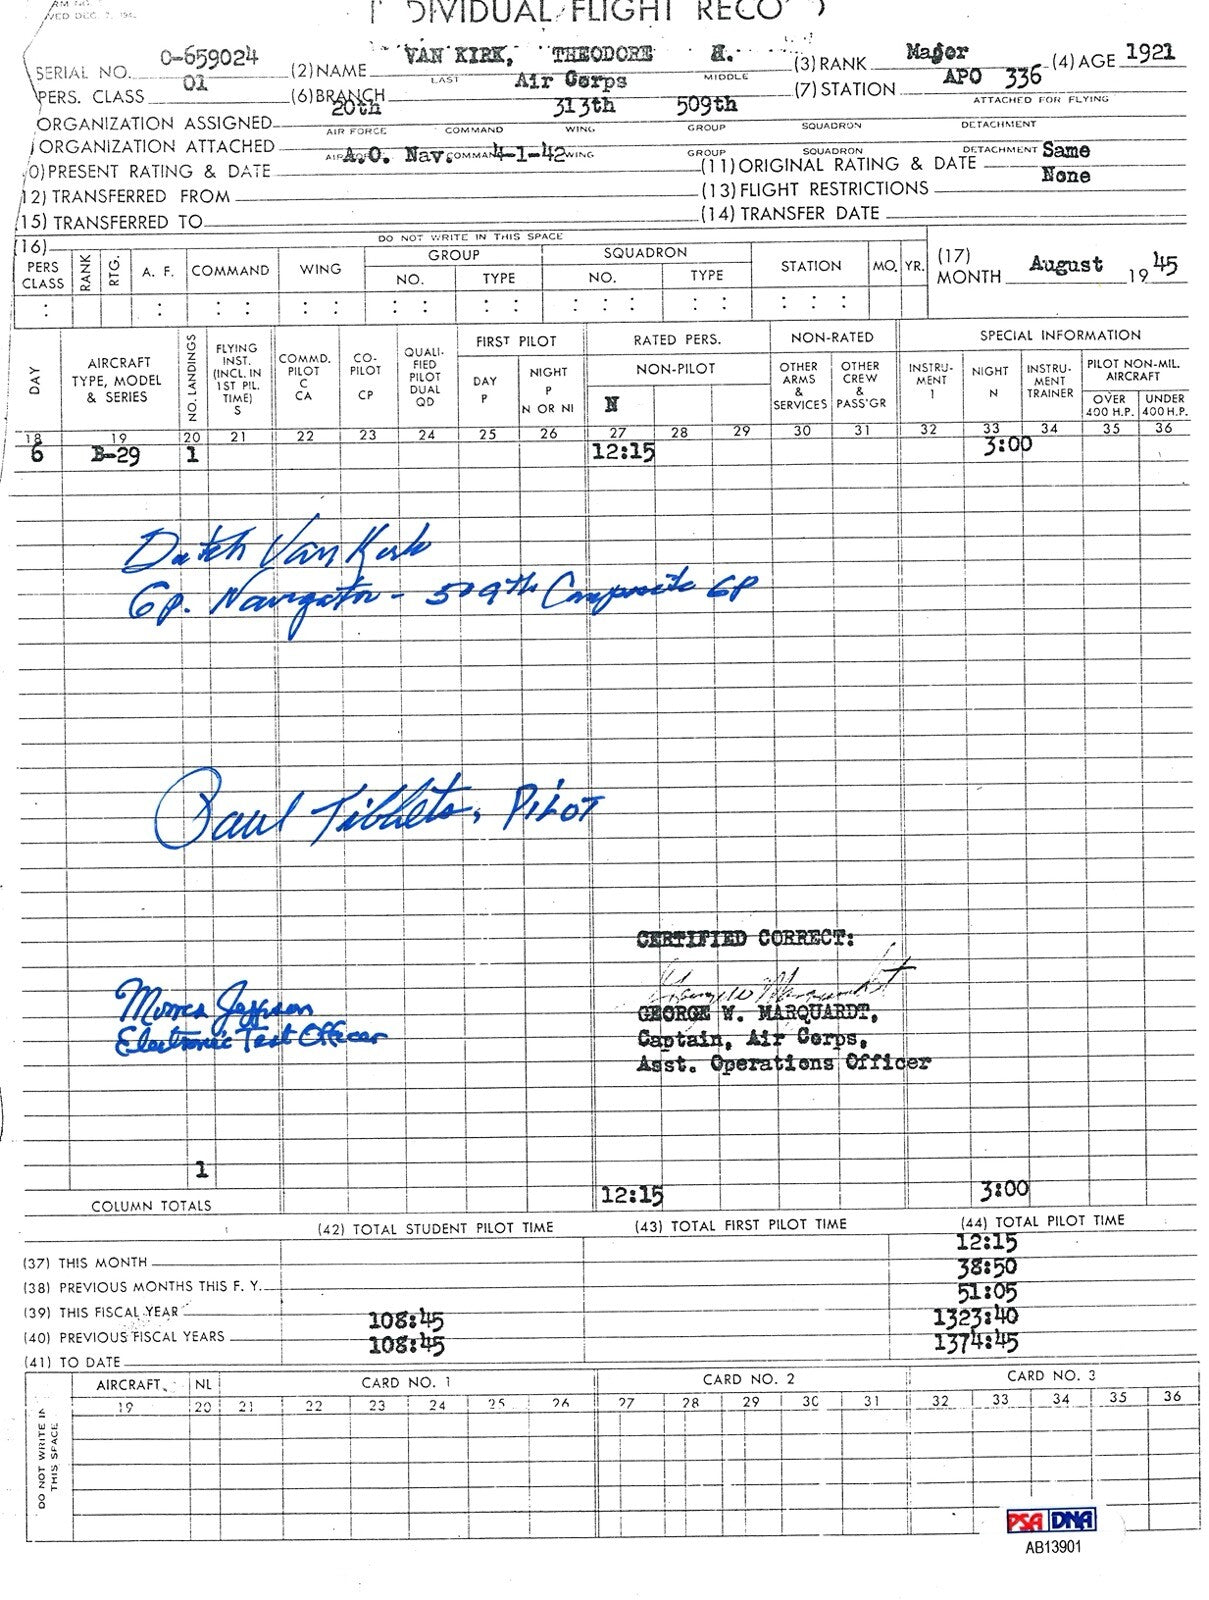 DIVIDUAL FLIGHT RECO
SERIAL NO. 0-659024 (2) NAME VAN KIRK, THEODORE H. (3) RANK Major (4) AGE 1921
LAST MIDDLE
PERS. CLASS 01 (6) BRANCH Air Corps (7) STATION APO 336
ATTACHED FOR FLYING
ORGANIZATION ASSIGNED 20th 313th 509th
AIR FORCE COMMAND WING GROUP SQUADRON DETACHMENT
ORGANIZATION ATTACHED
COMMAND WING GROUP SQUADRON DETACHMENT
0) PRESENT RATING & DATE A.O. Nav. 4-1-42 (11) ORIGINAL RATING & DATE Same
12) TRANSFERRED FROM (13) FLIGHT RESTRICTIONS None
15) TRANSFERRED TO (14) TRANSFER DATE
(16) DO NOT WRITE IN THIS SPACE
PERS CLASS RANK RTG. A. F. COMMAND WING GROUP SQUADRON STATION MO. YR.
NO. TYPE NO. TYPE
(17) MONTH August 19 45
DAY AIRCRAFT TYPE, MODEL & SERIES NO. LANDINGS FLYING INST. (INCL. IN 1ST PIL. TIME) S COMMD. PILOT C CA CO-PILOT CP QUALI-FIED PILOT DUAL QD FIRST PILOT RATED PERS. NON-RATED SPECIAL INFORMATION
DAY P NIGHT P N OR NI NON-PILOT N OTHER ARMS & SERVICES OTHER CREW & PASS'GR INSTRU-MENT I NIGHT N INSTRU-MENT TRAINER PILOT NON-MIL. AIRCRAFT
OVER 400 H.P. UNDER 400 H.P.
18 19 20 21 22 23 24 25 26 27 28 29 30 31 32 33 34 35 36
6 B-29 1 12:15 3:00
Dutch Van Kirk
Gp. Navigator - 509th Composite Gp
Paul Tibbets, PILOT
CERTIFIED CORRECT:
George W Marquardt
GEORGE W. MARQUARDT,
Captain, Air Corps,
Asst. Operations Officer
Morris Jeppson
Electronic Test Officer
1
COLUMN TOTALS 12:15 3:00
(42) TOTAL STUDENT PILOT TIME (43) TOTAL FIRST PILOT TIME (44) TOTAL PILOT TIME
(37) THIS MONTH 12:15
(38) PREVIOUS MONTHS THIS F. Y. 38:50
(39) THIS FISCAL YEAR 51:05
(40) PREVIOUS FISCAL YEARS 108:45 1323:40
(41) TO DATE 108:45 1374:45
DO NOT WRITE IN THIS SPACE
AIRCRAFT NL CARD NO. 1 CARD NO. 2 CARD NO. 3
19 20 21 22 23 24 25 26 27 28 29 30 31 32 33 34 35 36
PSA DNA
AB13901